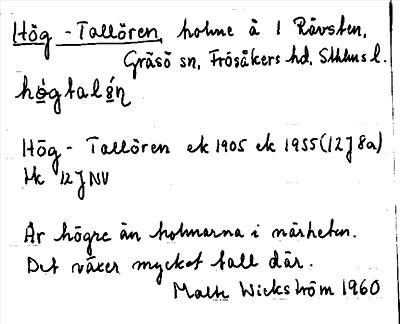 Hög-Tallören, holme å 1 Rävsten,
Gräsö sn, Frösåkers hd, Sthlms l.
hö̀gtalø̀n
Hög-Tallören ek 1905 ek 1955 (12J 8a)
Hk 12J NV
Är högre än holmarna i närheten.
Det växer mycket tall där.
Malte Wickström 1960